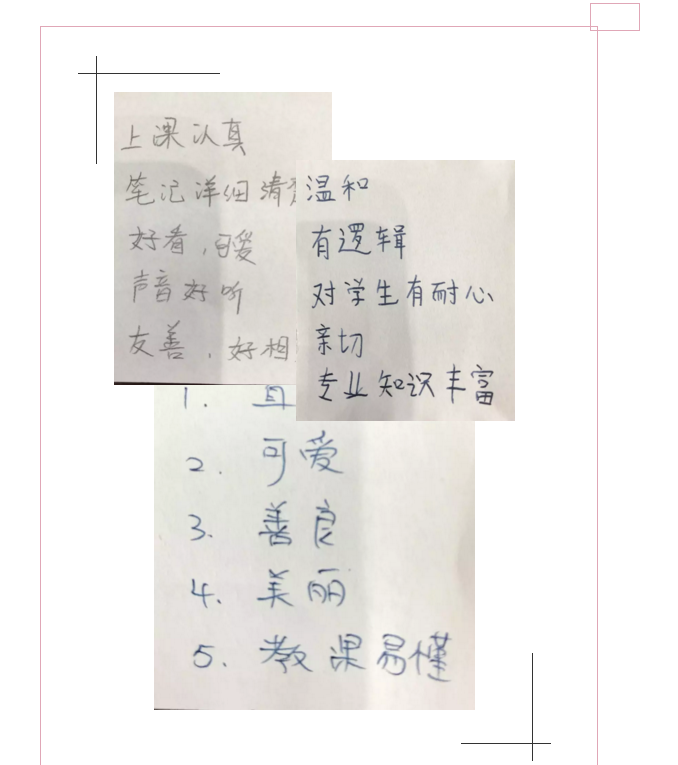 上课认真
笔记详细清
好看，可爱
声音好听
友善，好相
温和
有逻辑
对学生有耐心
亲切
专业知识丰富
1.
2. 可爱
3. 善良
4. 美丽
5. 教课易懂